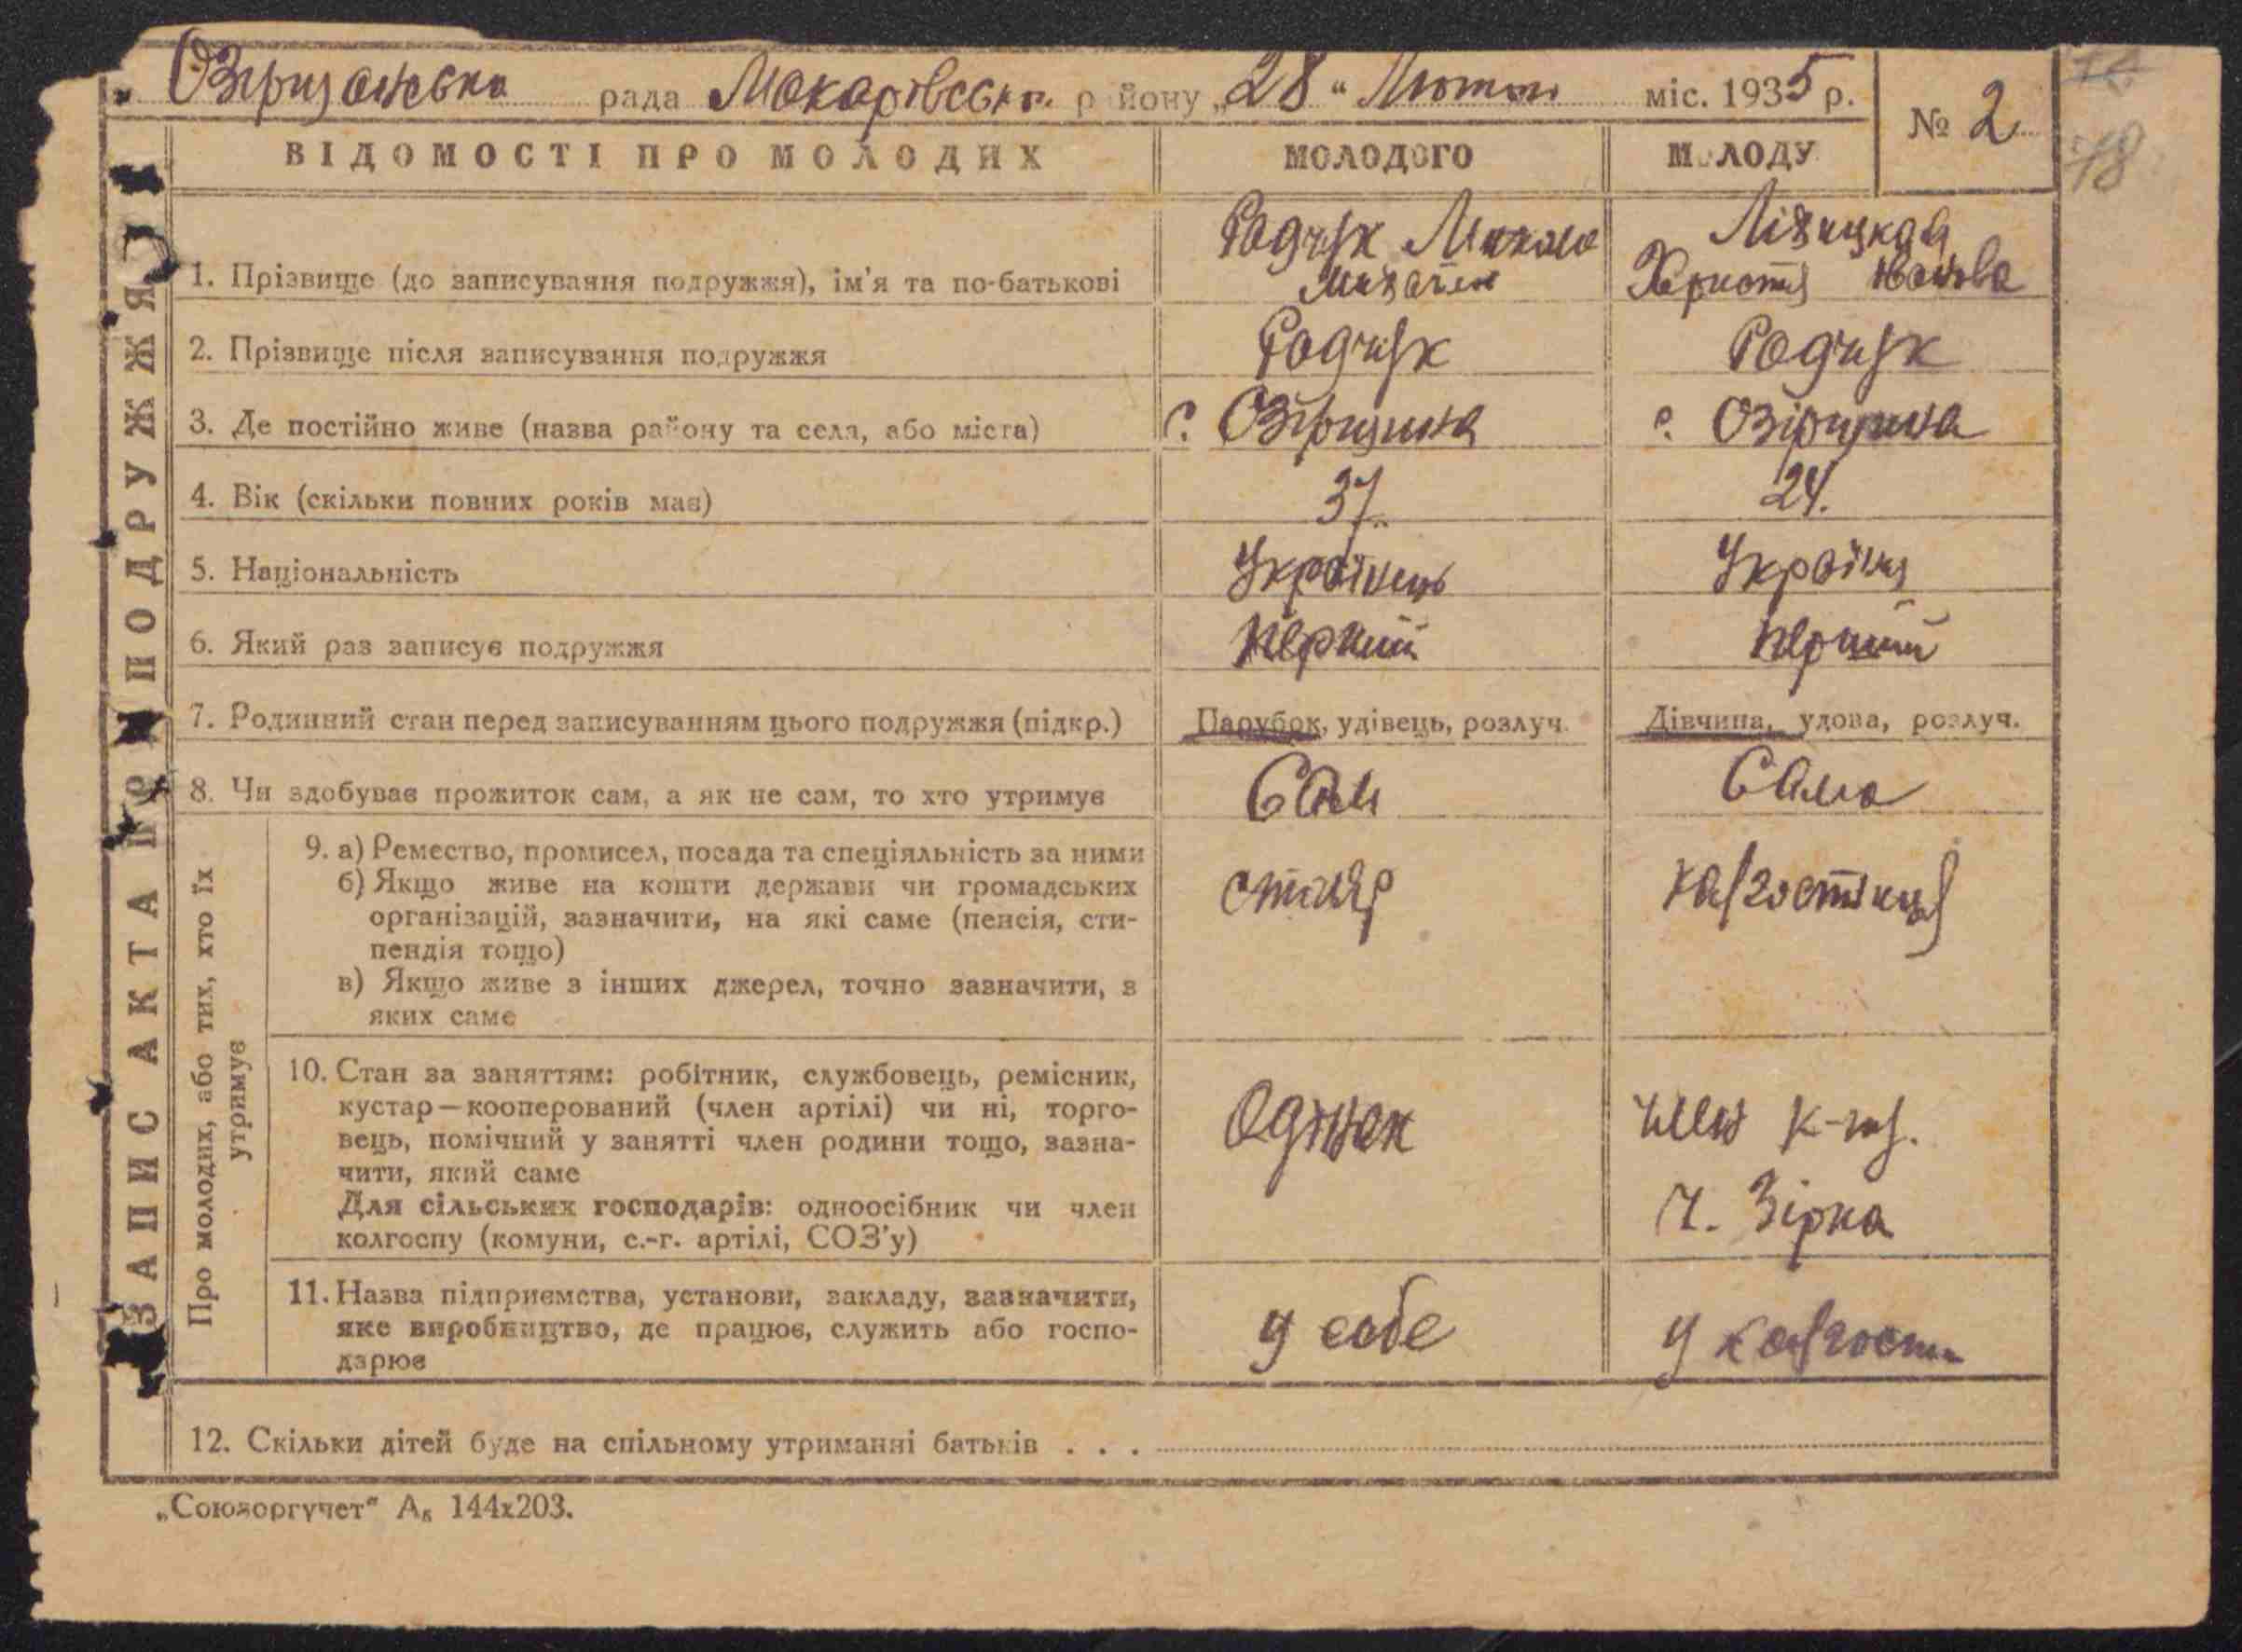 Озірщанська рада Макарівськ. району „28“ Лютого міс. 1935 р.
№ 2
18
ВІДОМОСТІ ПРО МОЛОДИХ
МОЛОДОГО
МОЛОДУ
1. Прізвище (до записування подружжя), ім'я та по-батькові
Родчук Микола
Ліхицкая
Христя
2. Прізвище після записування подружжя
Родчук
Родчук
3. Де постійно живе (назва району та села, або міста)
с. Озірщина
с. Озірщина
4. Вік (скільки повних років має)
37.
24.
5. Національність
Українець
Україн
6. Який раз записує подружжя
перший
перший
7. Родинний стан перед записуванням цього подружжя (підкр.)
Парубок, удівець, розлуч.
Дівчина, удова, розлуч.
8. Чи здобуває прожиток сам, а як не сам, то хто утримує
Сам
Сама
9. а) Ремество, промисел, посада та спеціяльність за ними
б) Якщо живе на кошти держави чи громадських
організацій, зазначити, на які саме (пенсія, сти-
пендія тощо)
в) Якщо живе з інших джерел, точно зазначити, з
яких саме
столяр
10. Стан за заняттям: робітник, службовець, ремісник,
кустар—кооперований (член артілі) чи ні, торго-
вець, помічний у занятті член родини тощо, зазна-
чити, який саме
Для сільських господарів: одноосібник чи член
колгоспу (комуни, с.-г. артілі, СОЗ'у)
Однак
член к-гу.
Ч. Зірка
11. Назва підприємства, установи, закладу, зазначити,
яке виробництво, де працює, служить або госпо-
дарює
у собе
у
12. Скільки дітей буде на спільному утриманні батьків . . .
ЗАПИС АКТА ПРО ПОДРУЖЖЯ
Про молодих, або тих, хто їх
утримує
„Союзоргучет“ А₅ 144х203.